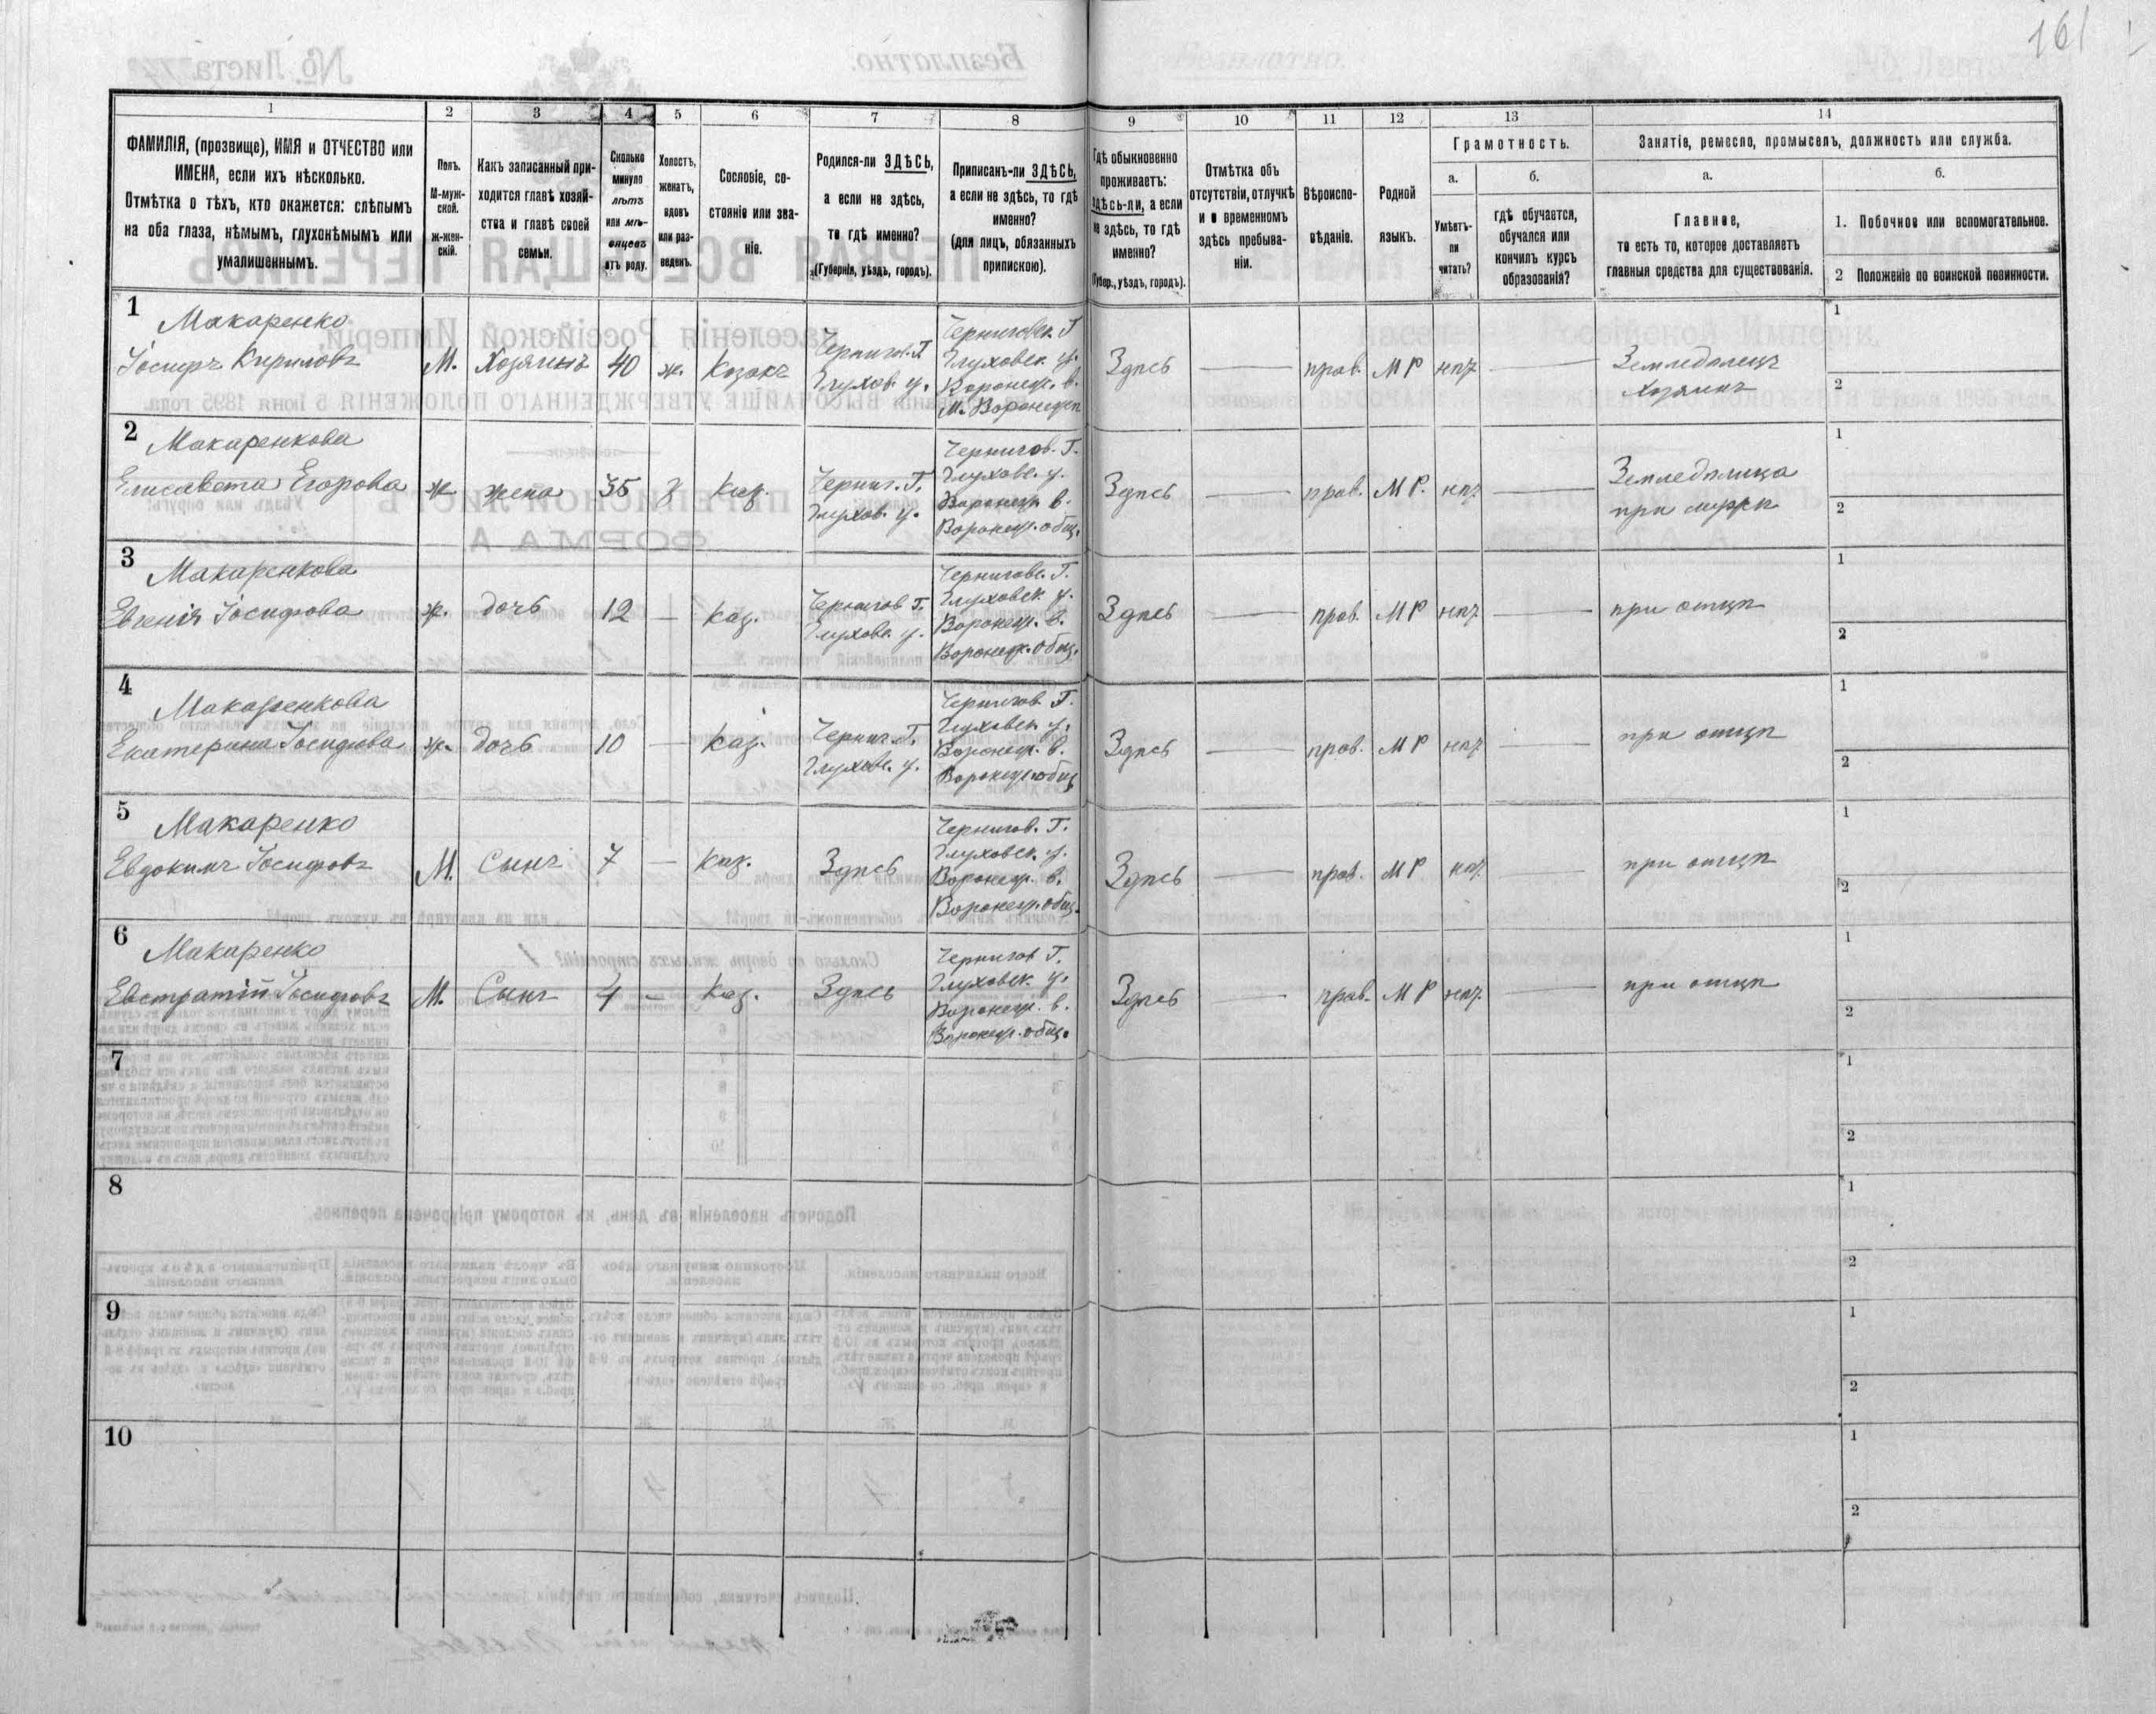 161
1
ФАМИЛІЯ, (прозвище), ИМЯ и ОТЧЕСТВО или
ИМЕНА, если ихъ нѣсколько.
Отмѣтка о тѣхъ, кто окажется: слѣпымъ
на оба глаза, нѣмымъ, глухонѣмымъ или
умалишеннымъ.
2
Полъ.
М-муж-
ской.
ж-жен-
скій.
3
Какъ записанный при-
ходится главѣ хозяй-
ства и главѣ своей
семьи.
4
Сколько
минуло
лѣтъ
или мѣ-
сяцевъ
отъ роду.
5
Холостъ,
женатъ,
вдовъ
или раз-
веденъ.
6
Сословіе, со-
стояніе или зва-
ніе.
7
Родился-ли ЗДѢСЬ,
а если не здѣсь,
то гдѣ именно?
(Губернія, уѣздъ, городъ).
8
Приписанъ-ли ЗДѢСЬ,
а если не здѣсь, то гдѣ
именно?
(для лицъ, обязанныхъ
припискою).
9
Гдѣ обыкновенно
проживаетъ:
здѣсь-ли, а если
не здѣсь, то гдѣ
именно?
(Губер., уѣздъ, городъ).
10
Отмѣтка объ
отсутствіи, отлучкѣ
и о временномъ
здѣсь пребыва-
ніи.
11
Вѣроиспо-
вѣданіе.
12
Родной
языкъ.
13
Грамотность.
а.
Умѣетъ-
ли
читать?
б.
гдѣ обучается,
обучался или
кончилъ курсъ
образованія?
14
Занятіе, ремесло, промыселъ, должность или служба.
а.
Главное,
то есть то, которое доставляетъ
главныя средства для существованія.
б.
1. Побочное или вспомогательное.
2 Положеніе по воинской повинности.
1
Макаренко
Іосифъ Кириловъ
М.
Хозяинъ
40
ж.
Козакъ
Чернигов. Г.
Глухов. у.
Черниговск. Г
Глуховск. у.
Воронеж. в.
м. Воронежъ
Здѣсь
прав.
М Р
нѣт
Земледѣлецъ
Хозяинъ
1
2
2
Макаренкова
Елисавета Егорова
ж
жена
35
з
Каз.
Черниг. Г.
Глухов. у.
Чернигов. Г.
Глухов. у.
Воронеж. в.
Воронеж. общ.
Здѣсь
прав.
М Р.
нѣт
Земледѣлица
при мужѣ
1
2
3
Макаренкова
Евгенія Іосифова
ж.
дочь
12
Каз.
Чернигов Г.
Глухов. у.
Чернигов. Г.
Глуховск. у.
Воронеж. в.
Воронеж. общ.
Здѣсь
прав.
М Р
нѣт
при отцѣ
1
2
4
Макаренкова
Екатерина Іосифова
ж.
дочь
10
Каз.
Черниг. Г.
Глухов. у.
Чернигов Г.
Глуховск. у.
Воронеж. в.
Воронеж. общ
Здѣсь
прав.
М Р
нѣт
при отцѣ
1
2
5
Макаренко
Евдокимъ Іосифовъ
М.
Сынъ
7
Каз.
Здѣсь
Чернигов. Г.
Глуховск. у.
Воронеж. в.
Воронеж. общ.
Здѣсь
прав.
М Р
нѣт
при отцѣ
1
2
6
Макаренко
Евстратій Іосифовъ
М.
Сынъ
4
Каз.
Здѣсь
Чернигов Г.
Глуховск. у.
Воронеж. в.
Воронеж. общ.
Здѣсь
прав.
М Р
нѣт
при отцѣ
1
2
7
1
2
8
1
2
9
1
2
10
1
2